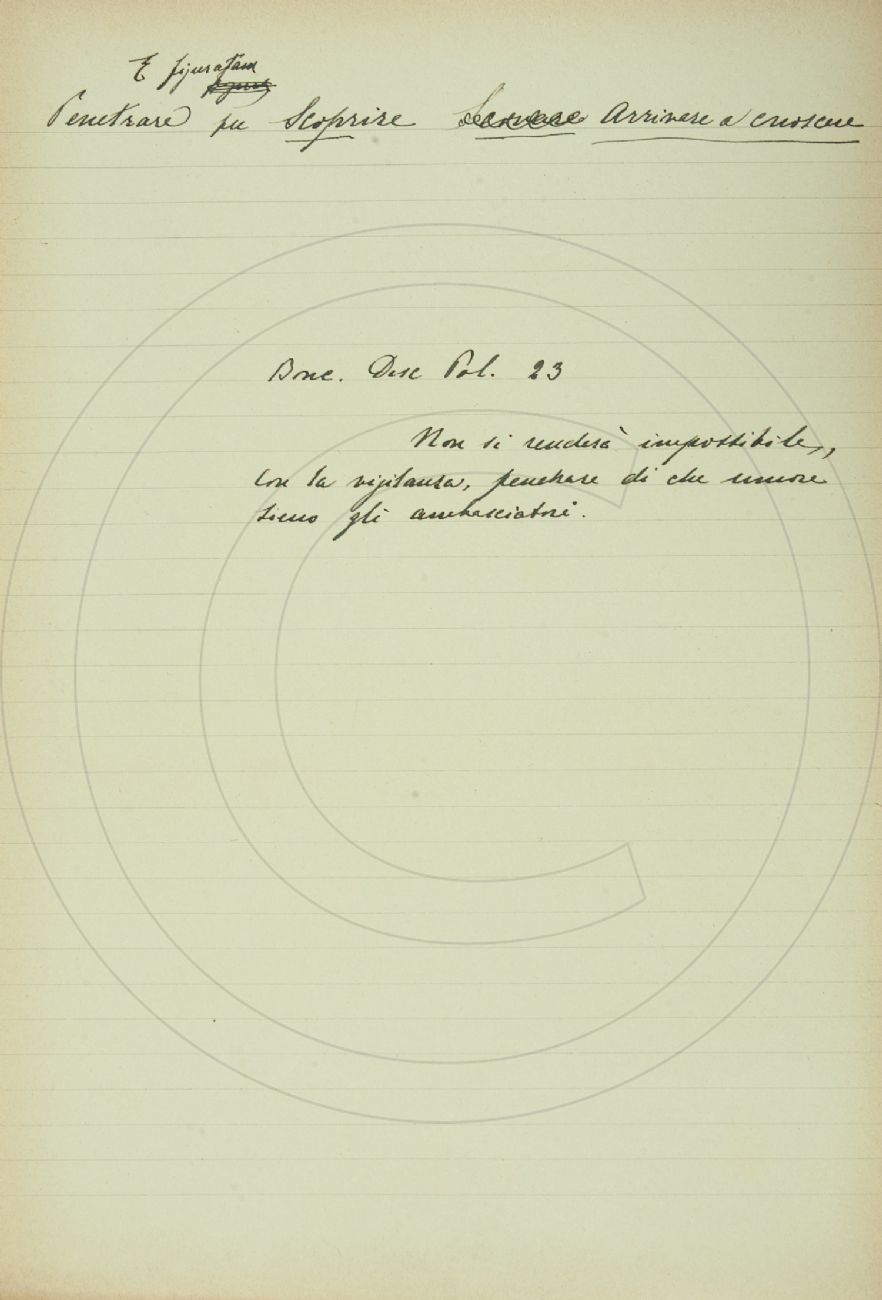 E figuratam
Penetrare per Scoprire Arrivare a conoscere
Bocc. Disc Pol. 23
Non si renderà impossibile,
con la vigilanza, penetrare di che umore
sieno gli ambasciatori.